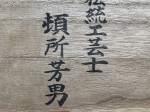 伝統工芸士
頓所芳男